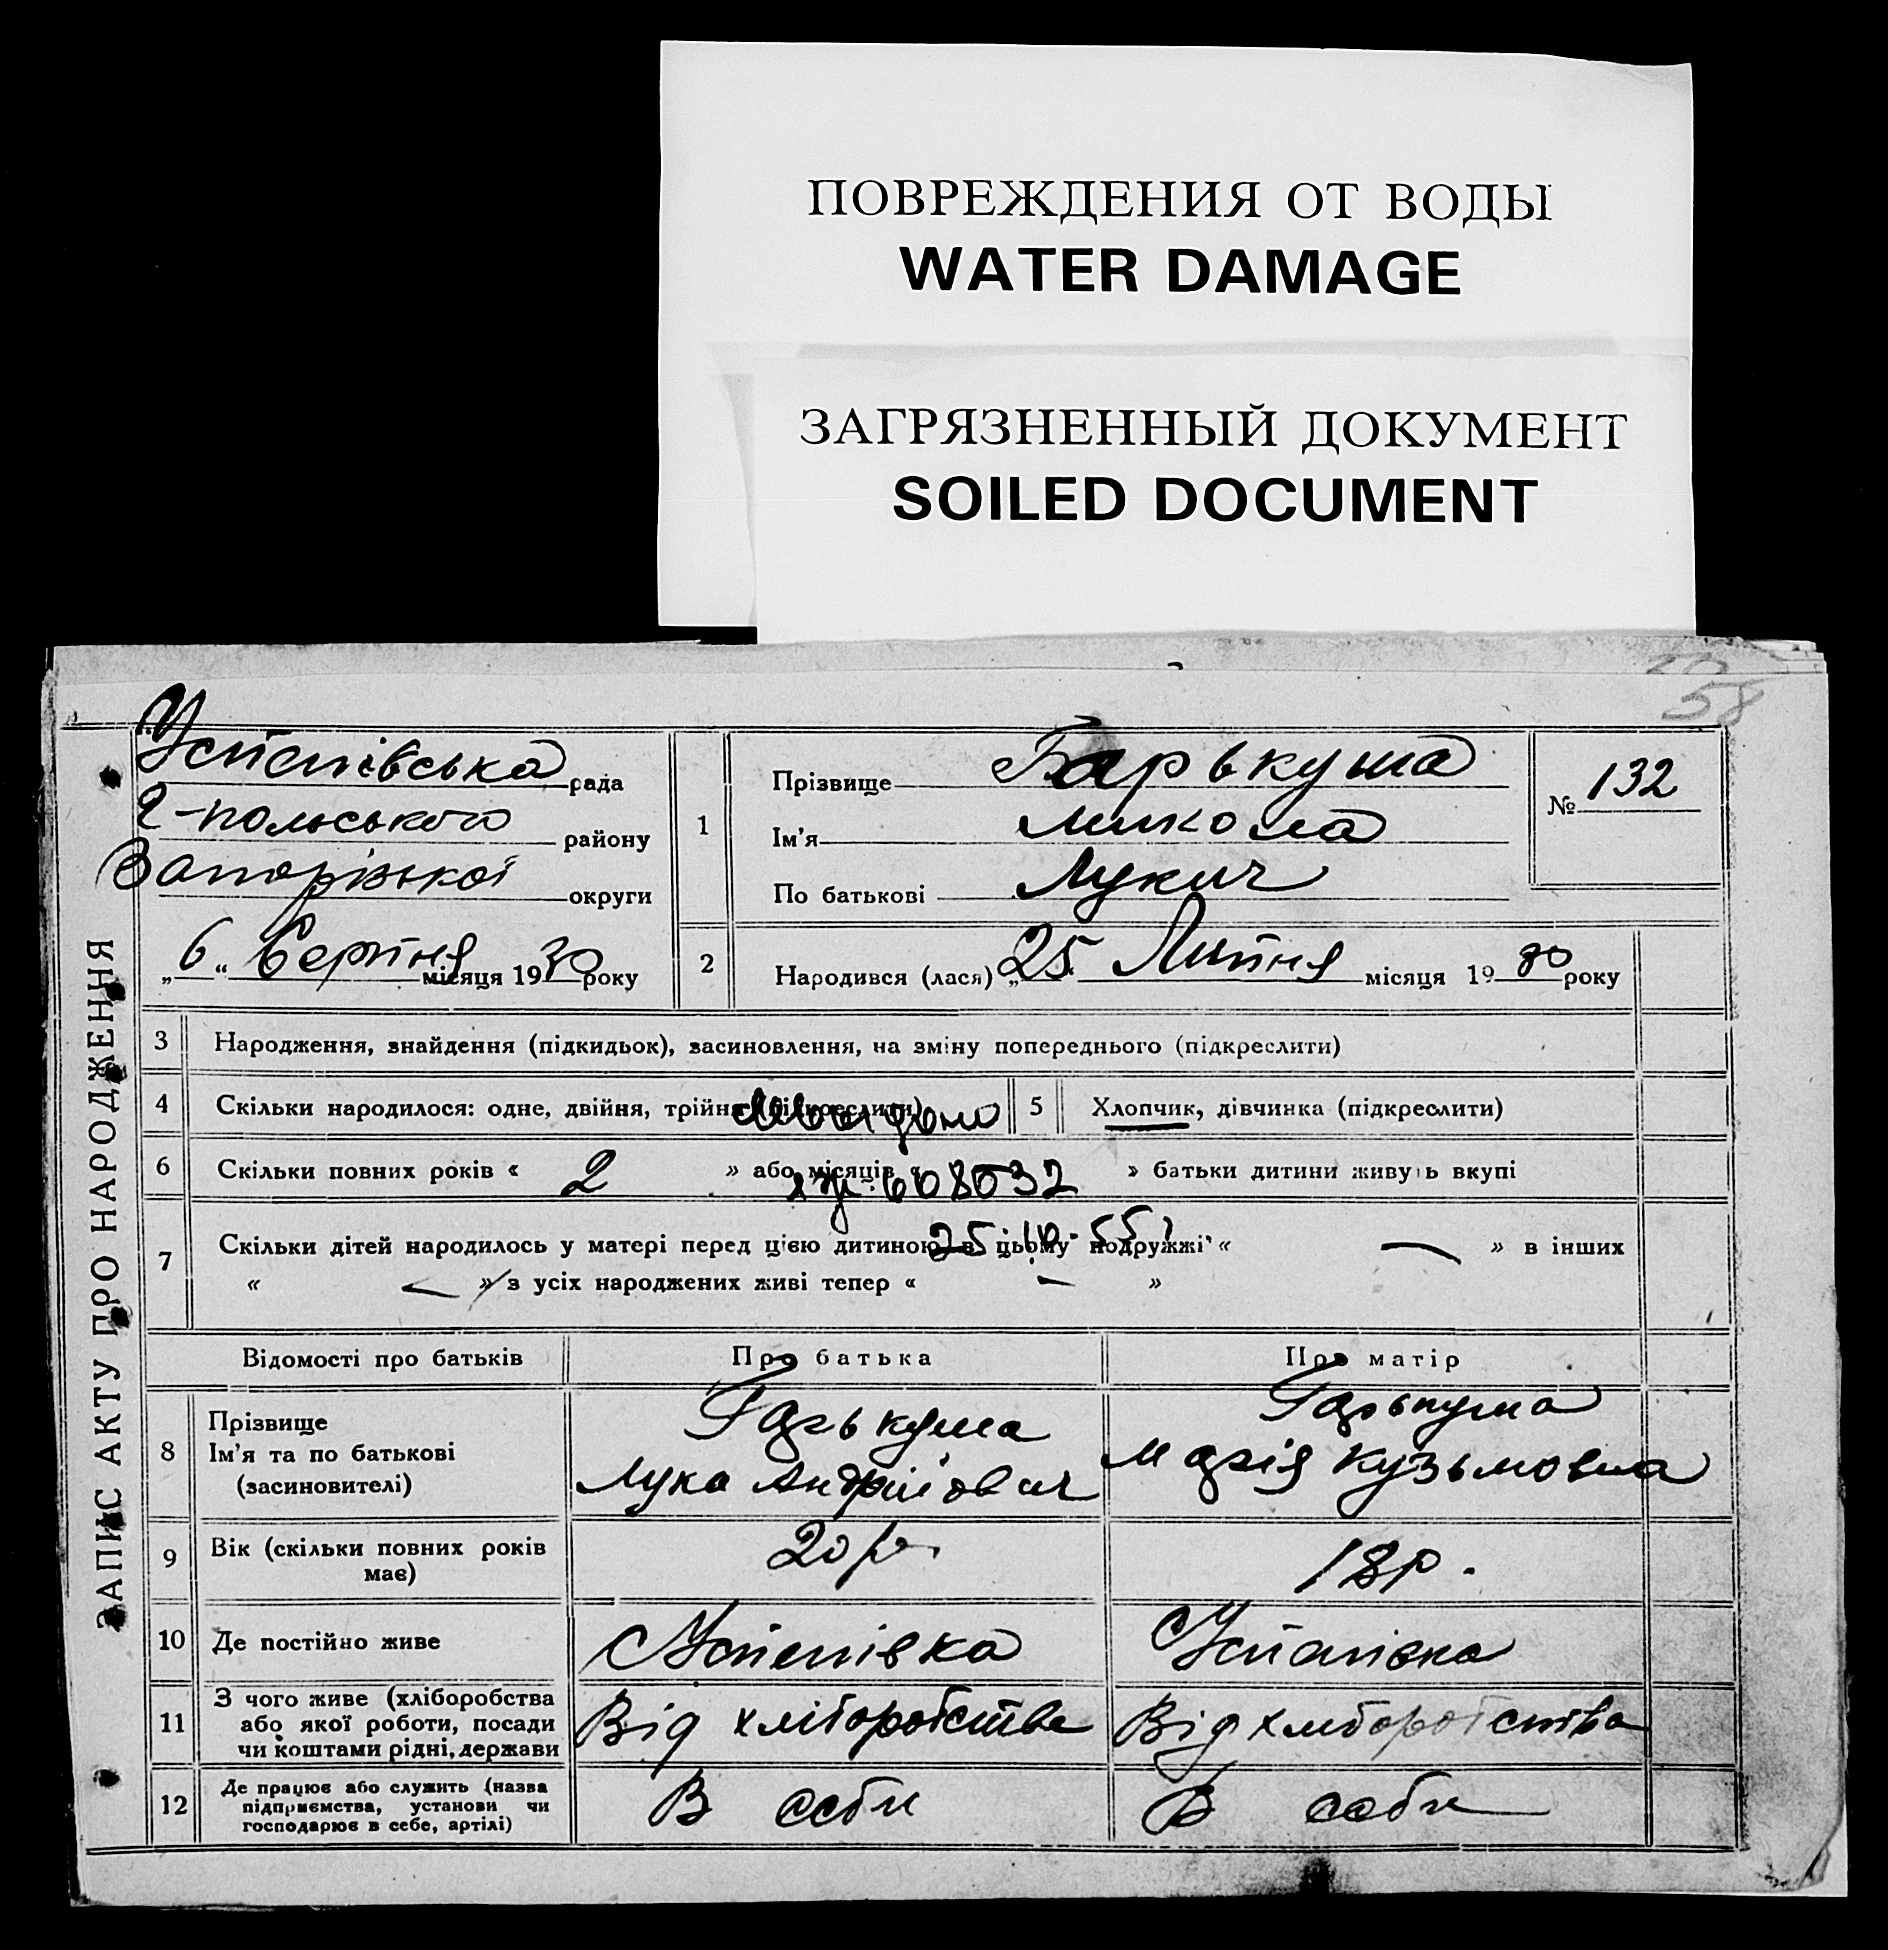 ПОВРЕЖДЕНИЯ ОТ ВОДЫ
WATER DAMAGE
ЗАГРЯЗНЕННЫЙ ДОКУМЕНТ
SOILED DOCUMENT
58
ЗАПИС АКТУ ПРО НАРОДЖЕННЯ
Успенівська рада
Г-польського району
Запорізької округи
„6“ Серпня місяця 1930 року
1 Прізвище Гарькуша
Ім'я Микола
По батькові Лукич
№ 132
2 Народився (лася) „25 Липня місяця 1930 року
3 Народження, знайдення (підкидьок), засиновлення, на зміну попереднього (підкреслити)
4 Скільки народилося: одне, двійня, трійня (підкреслити)
5 Хлопчик, дівчинка (підкреслити)
6 Скільки повних років « 2 » або місяців « » батьки дитини живуть вкупі
608032
7 Скільки дітей народилось у матері перед цією дитиною: в цьому подружжі « — » в інших
25.10.55
« — » з усіх народжених живі тепер « — »
Відомості про батьків Про батька Про матір
8 Прізвище
Ім'я та по батькові
(засиновителі)
Гарькуша
Лука Андрійович
Гарькуша
Марія Кузьмовна
9 Вік (скільки повних років
має)
20 р.
18 р.
10 Де постійно живе Успенівка Успенівка
11 З чого живе (хліборобства
або якої роботи, посади
чи коштами рідні, держави
Від хліборобства Від хліборобства
12 Де працює або служить (назва
підприємства, установи чи
господарює в себе, артілі)
В себи В себи